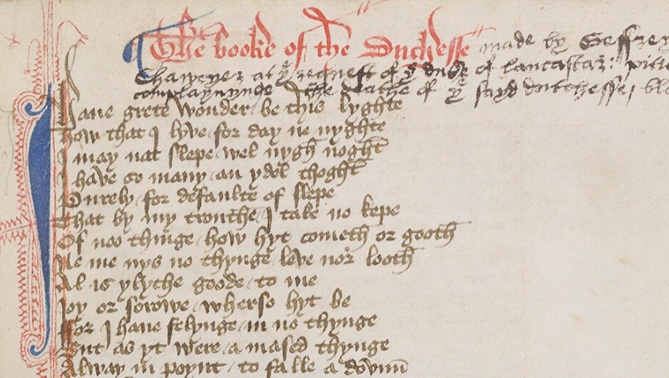 The booke of the Duchesse made by Geffrey
Chaweyer at yͤ request of yͤ duke of lancastar: pitio
complaynynge the deathe of yͤ sayd dutchesse, bla
I haue grete wonder be this lyghte
How that I lyve for day ne nyghte
I may nat slepe wel nygh noght
I haue so many an ydel thoght
Purely for defaulte of slepe
That by my trouthe I take no kepe
Of noo thinge how hyt cometh or gooth
Ne me nys no thynge leve nor looth
Al is ylyche goode to me
Joy or sorowe wherso hyt be
For I haue felynge in no thynge
But as yt were a mased thynge
Alway in poynt to falle a dovun